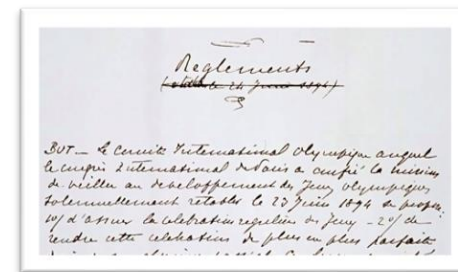 Reglements
le 24 Juin 1894)
BUT _ Le Comité International Olympique auquel
le congrès International de Paris a confié la mission
de veiller au développement des Jeux olympiques
solennellement rétablis le 23 juin 1894 se propose
1o/ d'assurer la célébration régulière des Jeux _ 2o/ de
rendre cette célébration de plus en plus parfaite